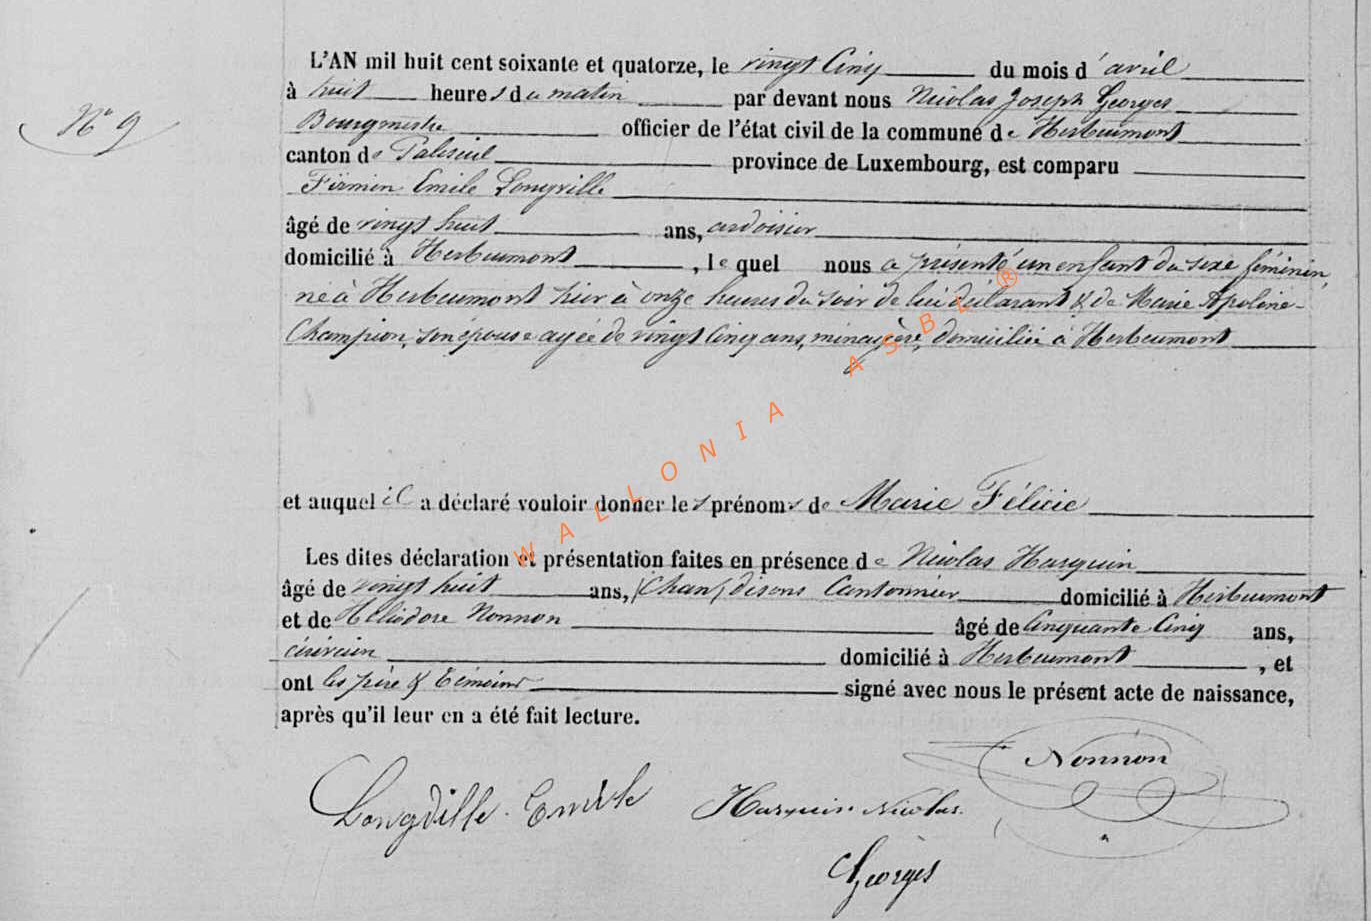 N° 9
L'AN mil huit cent soixante et quatorze, le vingt Cinq du mois d'avril
à huit heures du matin par devant nous Nicolas Joseph Georges
Bourgmestre officier de l'état civil de la commune de Herbeumont
canton de Paliseul province de Luxembourg, est comparu
Firmin Emile Longville
âgé de vingt huit ans, ardoisier
domicilié à Herbeumont, lequel nous a présenté un enfant du sexe féminin,
né à Herbeumont hier à onze heures du soir de lui déclarant & de Marie Apoline
Champion, son épouse agée de vingt Cinq ans, ménagère, domiciliée à Herbeumont
et auquel il a déclaré vouloir donner les prénoms de Marie Félicie
Les dites déclaration et présentation faites en présence de Nicolas Harquin
âgé de vingt huit ans, (Chan) disons Cantonnier domicilié à Herbeumont
et de Héliodore Nonnon âgé de Cinquante Cinq ans,
domicilié à Herbeumont, et
ont les père & témoins signé avec nous le présent acte de naissance,
après qu'il leur en a été fait lecture.
Nonnon
Longville Emile Harquin Nicolas.
Georges
WALLONIA ASBL ®